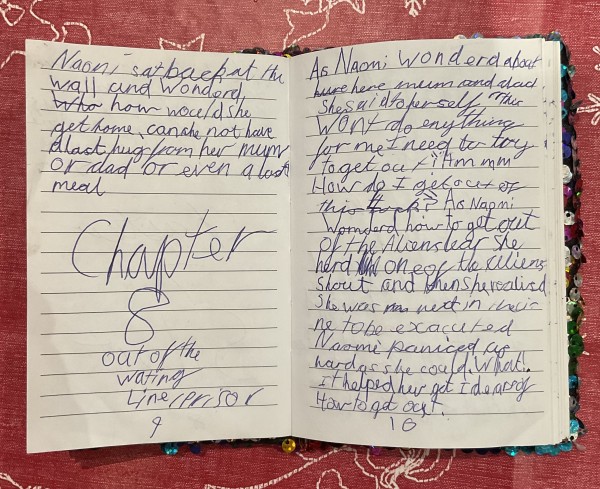 Naomi sat back at the
wall and wonderd
Who how would she
get home, can she not have
a last hug from her mum
or dad or even a last
meal
Chapter
8
out of the
wating
Line/prisor
9
As Naomi wonderd about
here mum and dad.
She said to perself, This
wont do enything
for me I need to try
to get out! Hmmmm
How do I get out of
this? As Naomi
womderd how to get out
of the Aliens lear she
herd one of the Aliens
shout and then she realised
she was next in their
ne to be exacuted
Naomi paniced as
hard as she could. What.
it helped her get I dear of
How to get out.
10